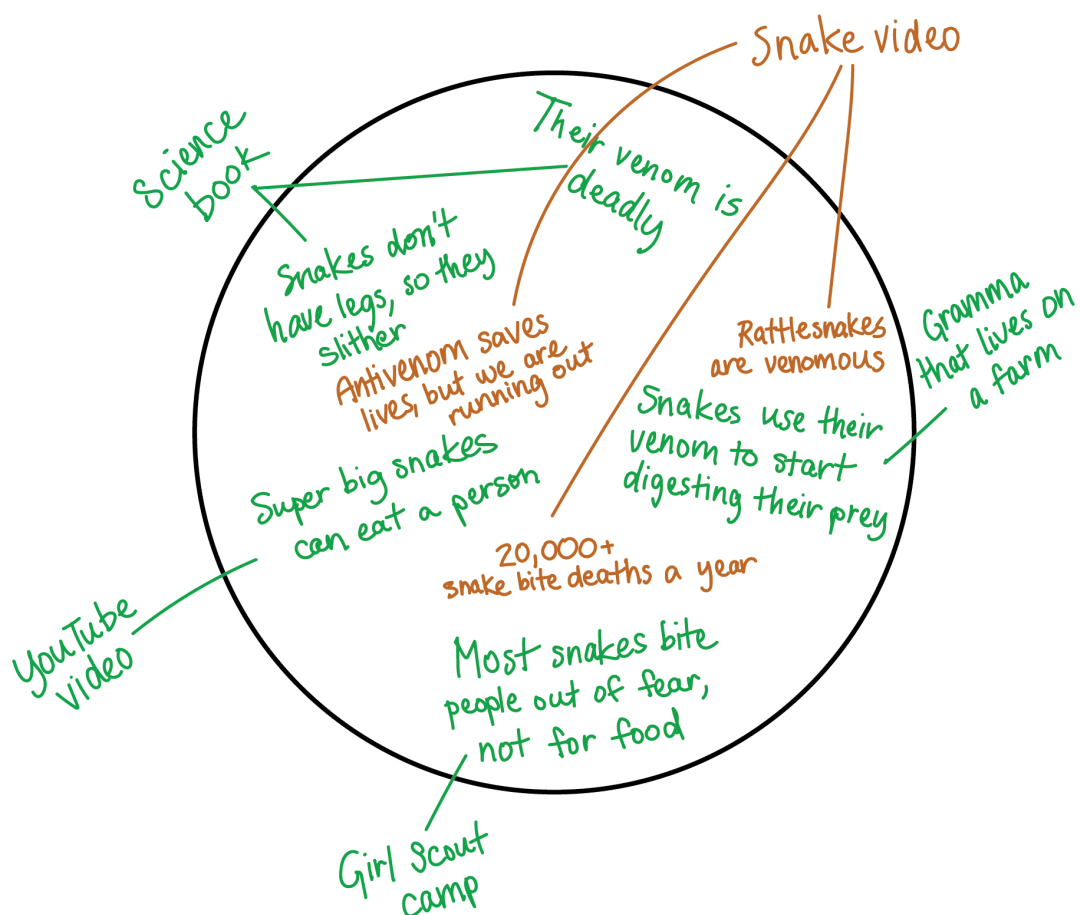 Snake video
Science
book
Their venom is
deadly
Snakes don't
have legs, so they
slither
Antivenom saves
lives, but we are
running out
Rattlesnakes
are venomous
Gramma
that lives on
a farm
Snakes use their
venom to start
digesting their prey
Super big snakes
can eat a person
20,000+
snake bite deaths a year
YouTube
video
Most snakes bite
people out of fear,
not for food
Girl Scout
camp